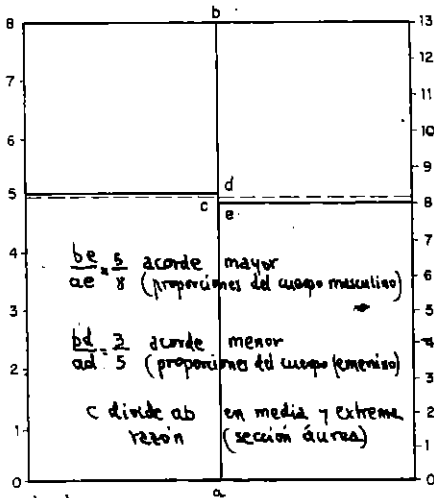 b
8
13
12
7
11
6
10
9
d
5
c
8
e
7
4
be/ae = 5/8 acorde mayor
6
(proporciones del cuerpo masculino)
5
3
4
bd/ad = 3/5 acorde menor
2
(proporciones del cuerpo femenino)
3
2
c divide ab en media y extrema
1
razón (sección áurea)
1
0
a
0